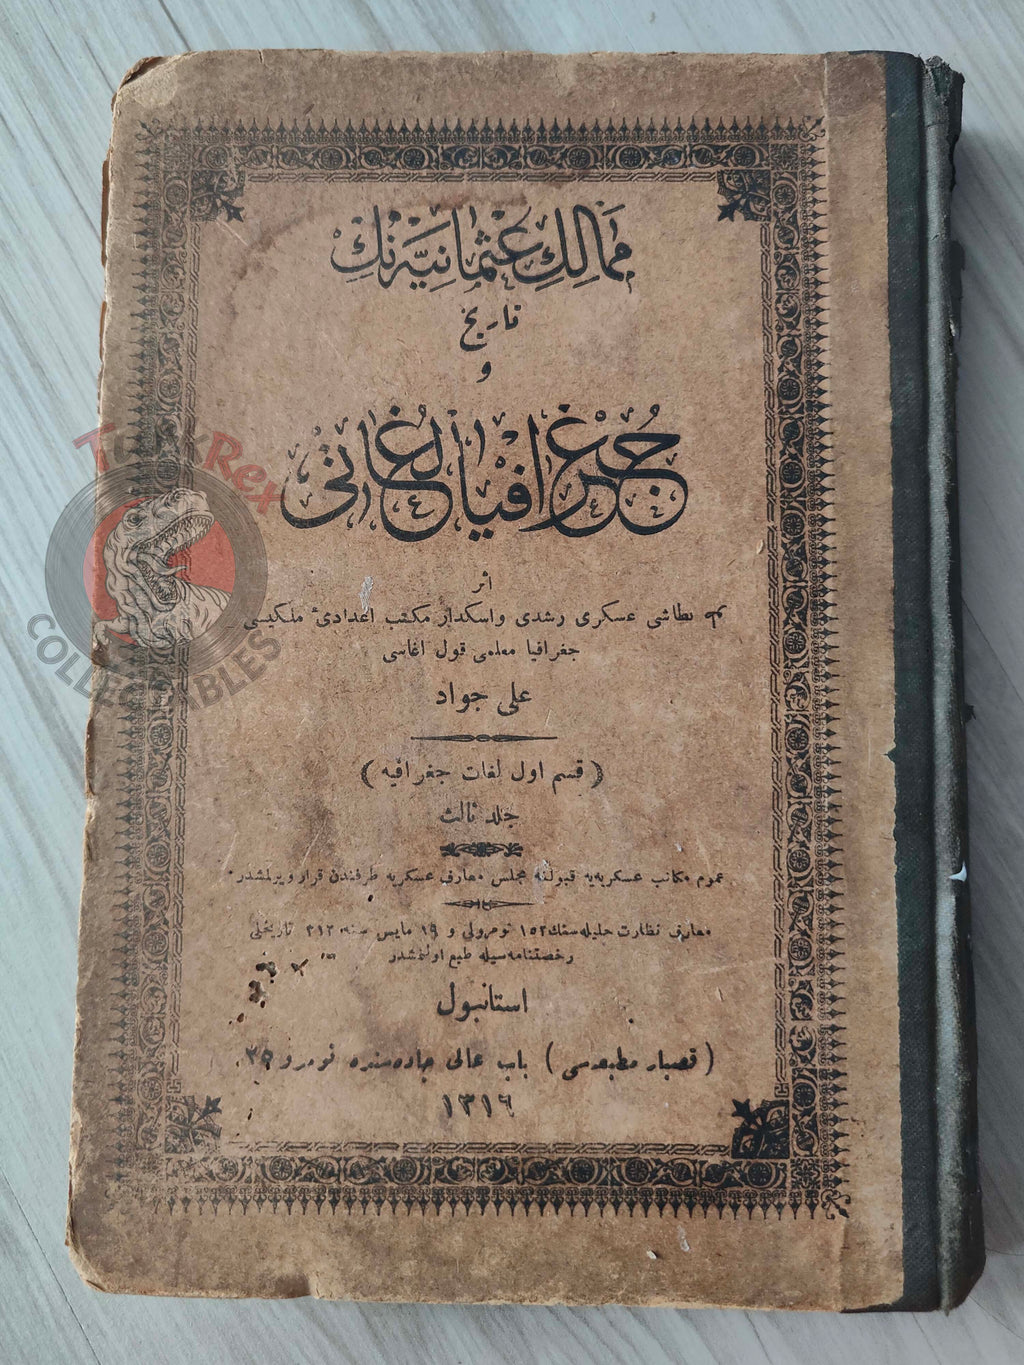 ممالك عثمانیه‌نك
تاریخ
و
جغرافیا لغاتی
اثر
طاشی عسكری رشدی واسكدار مكتب اعدادیٔ ملكیسی
جغرافیا معلمی قول اغاسی
علی جواد
( قسم اول لغات جغرافیه )
جلد ثالث
عموم مكاتب عسكریه‌یه قبولنه مجلس معارف عسكریه طرفندن قرار ویرلمشدر.
معارف نظارت جلیله‌سنك ١٥٢ نومرولی و ١٩ مایس سنه ٣١٢ تاریخلی
رخصتنامه‌سیله طبع اولنمشدر
استانبول
( قصبار مطبعه‌سی ) باب عالی جاده‌سنده نومرو ٢٥
١٣١٦
ToxxRex
COLLECTABLES